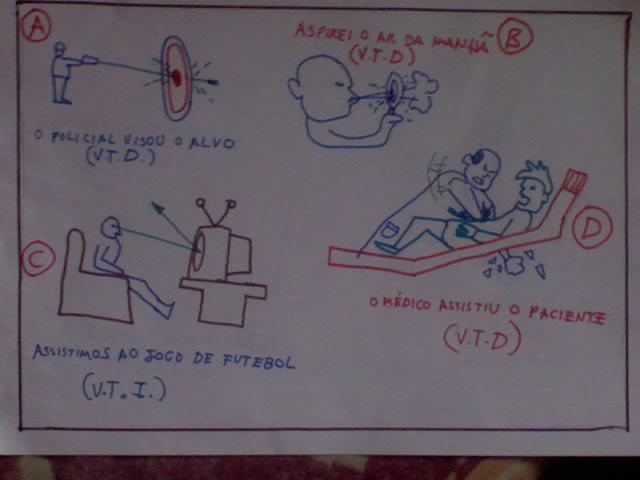 A
O POLICIAL VISOU O ALVO
(V.T.D.)
B
ASPIREI O AR DA MANHÃ
(V.T.D)
C
ASSISTIMOS AO JOGO DE FUTEBOL
(V.T.I.)
D
O MÉDICO ASSISTIU O PACIENTE
(V.T.D)